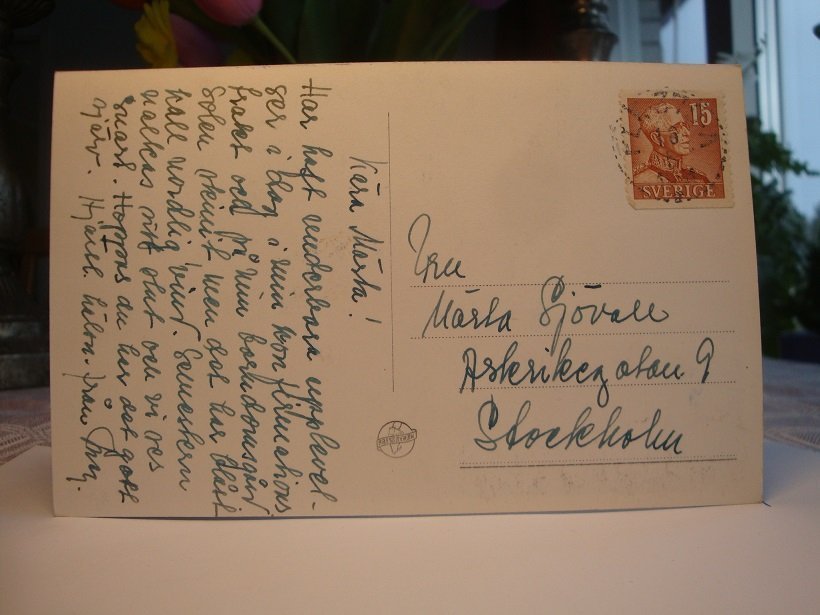 Kära Märta!
Har haft underbara upplevel-
ser i dag i min konfirmations
trakt och på min barndomsgård
Solen skinit men det har blåst
kall nordlig vind. Semestern
nalkas sitt slut och vi ses
snart. Hoppas du har det gott
själv. Hjärtl. hälsn. från
15
SVERIGE
Fru
Märta Sjövall
Askrikegatan 9
Stockholm